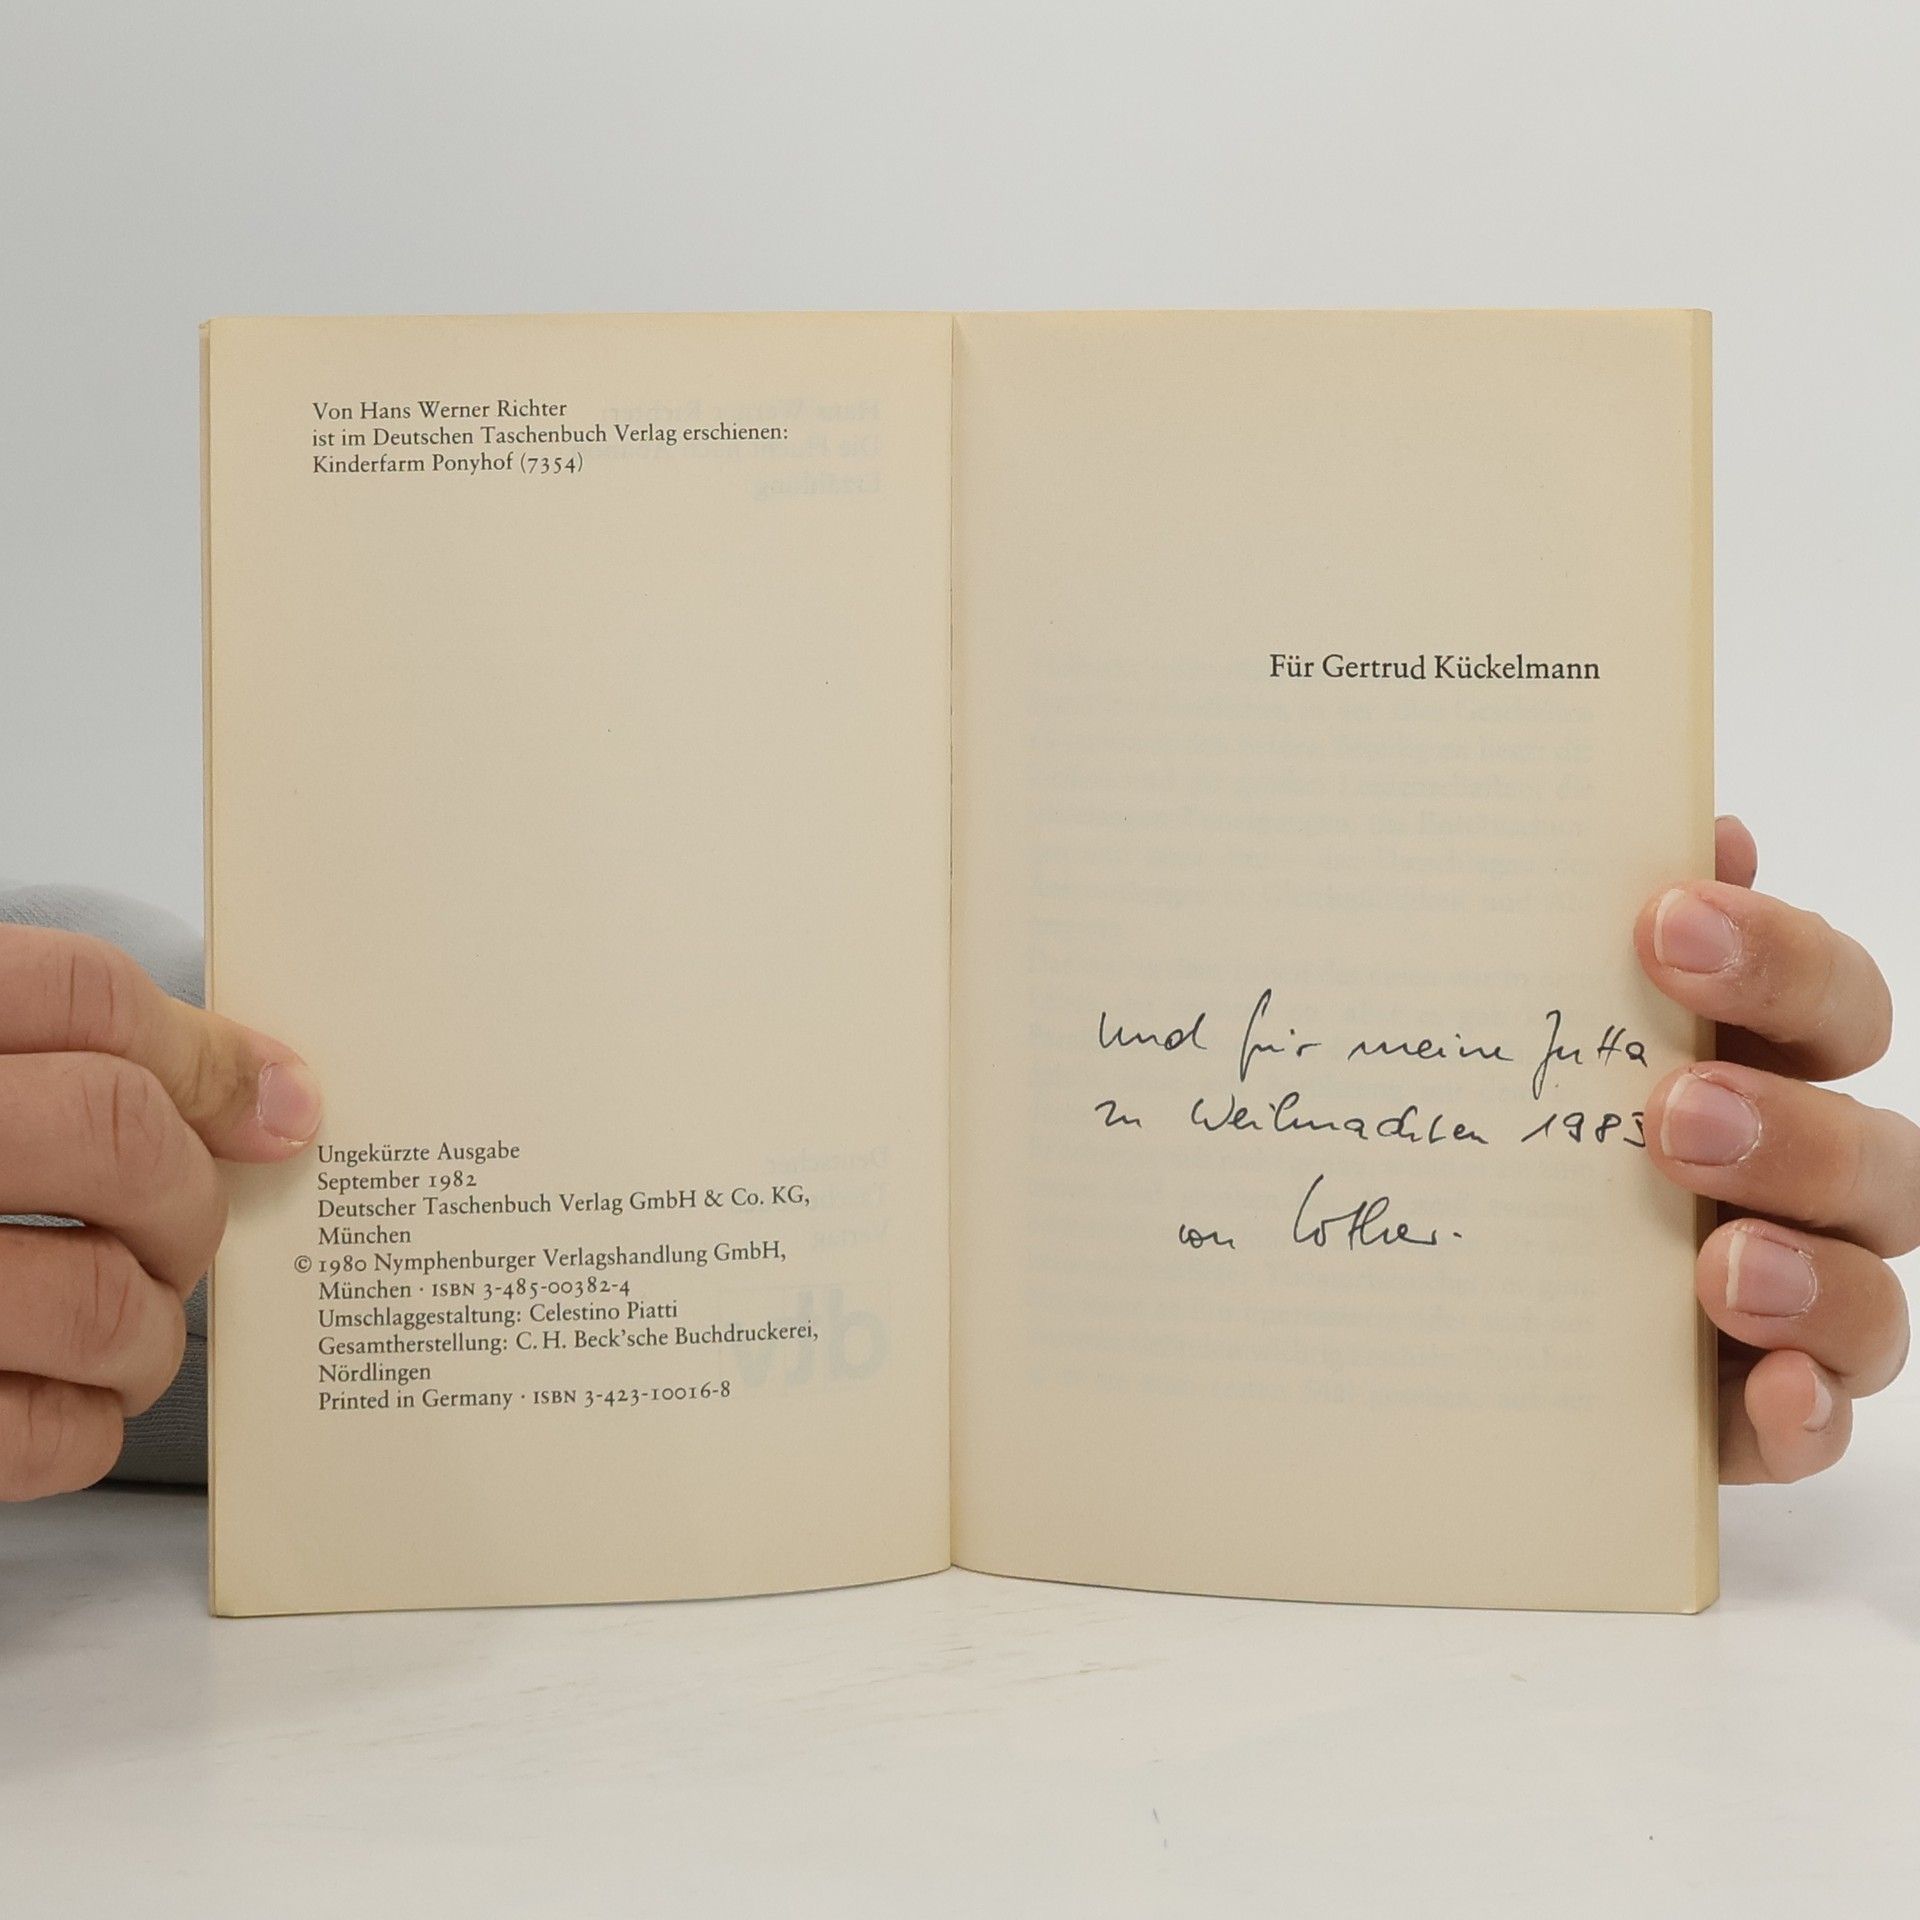 Von Hans Werner Richter
ist im Deutschen Taschenbuch Verlag erschienen:
Kinderfarm Ponyhof (7354)
Ungekürzte Ausgabe
September 1982
Deutscher Taschenbuch Verlag GmbH & Co. KG,
München
© 1980 Nymphenburger Verlagshandlung GmbH,
München · ISBN 3-485-00382-4
Umschlaggestaltung: Celestino Piatti
Gesamtherstellung: C. H. Beck'sche Buchdruckerei,
Nördlingen
Printed in Germany · ISBN 3-423-10016-8
Für Gertrud Kückelmann
und für meine Jutta
zu Weihnachten 1983
von Lothar.